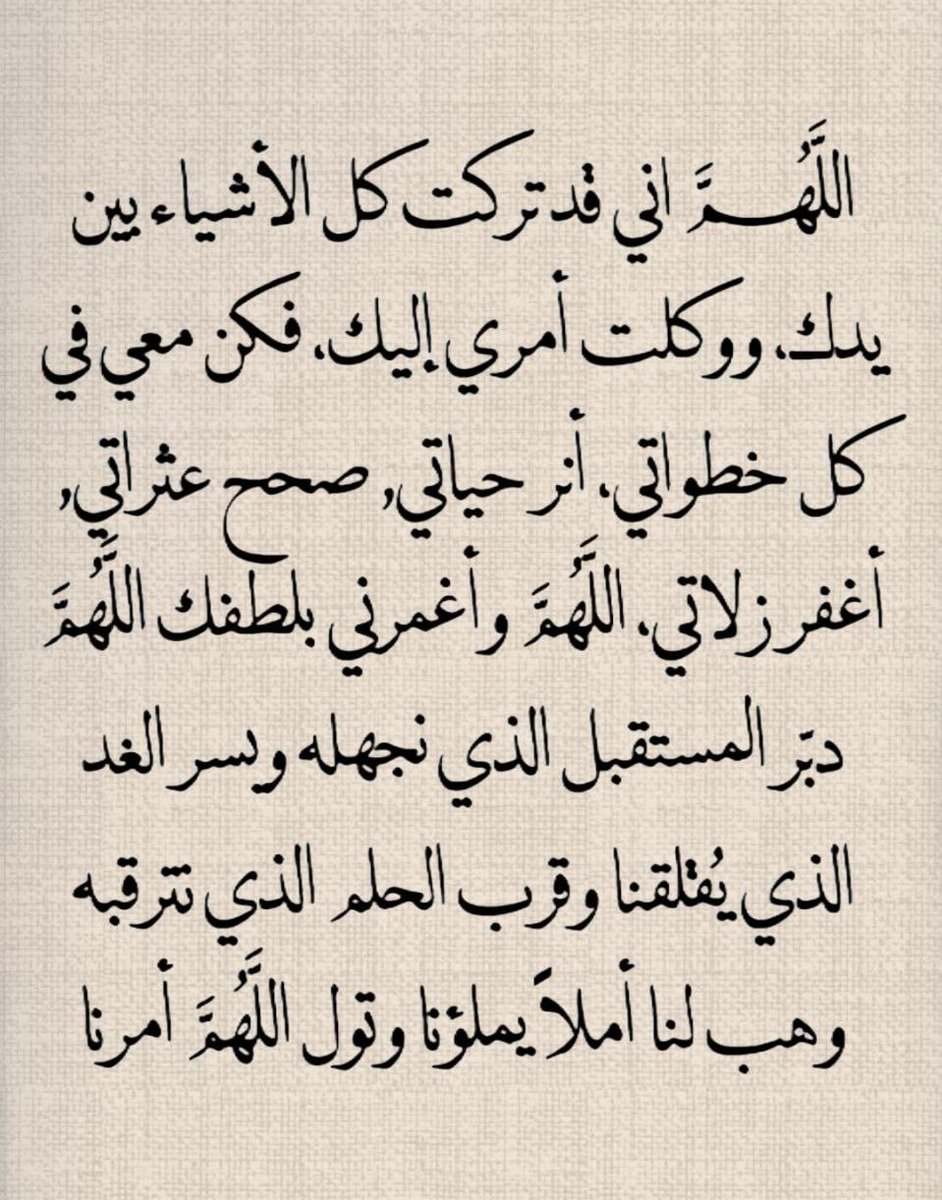 اللَّهُمَّ اني قد تركت كل الأشياء بين
يدك، ووكلت أمري إليك، فكن معي في
كل خطواتي، أنر حياتي, صحح عثراتي,
أغفر زلاتي، اللَّهُمَّ وأغمرني بلطفك اللَّهُمَّ
دبّر المستقبل الذي نجهله ويسر الغد
الذي يُقلقنا وقرب الحلم الذي نترقبه
وهب لنا أملاً يملؤنا وتول اللَّهُمَّ أمرنا